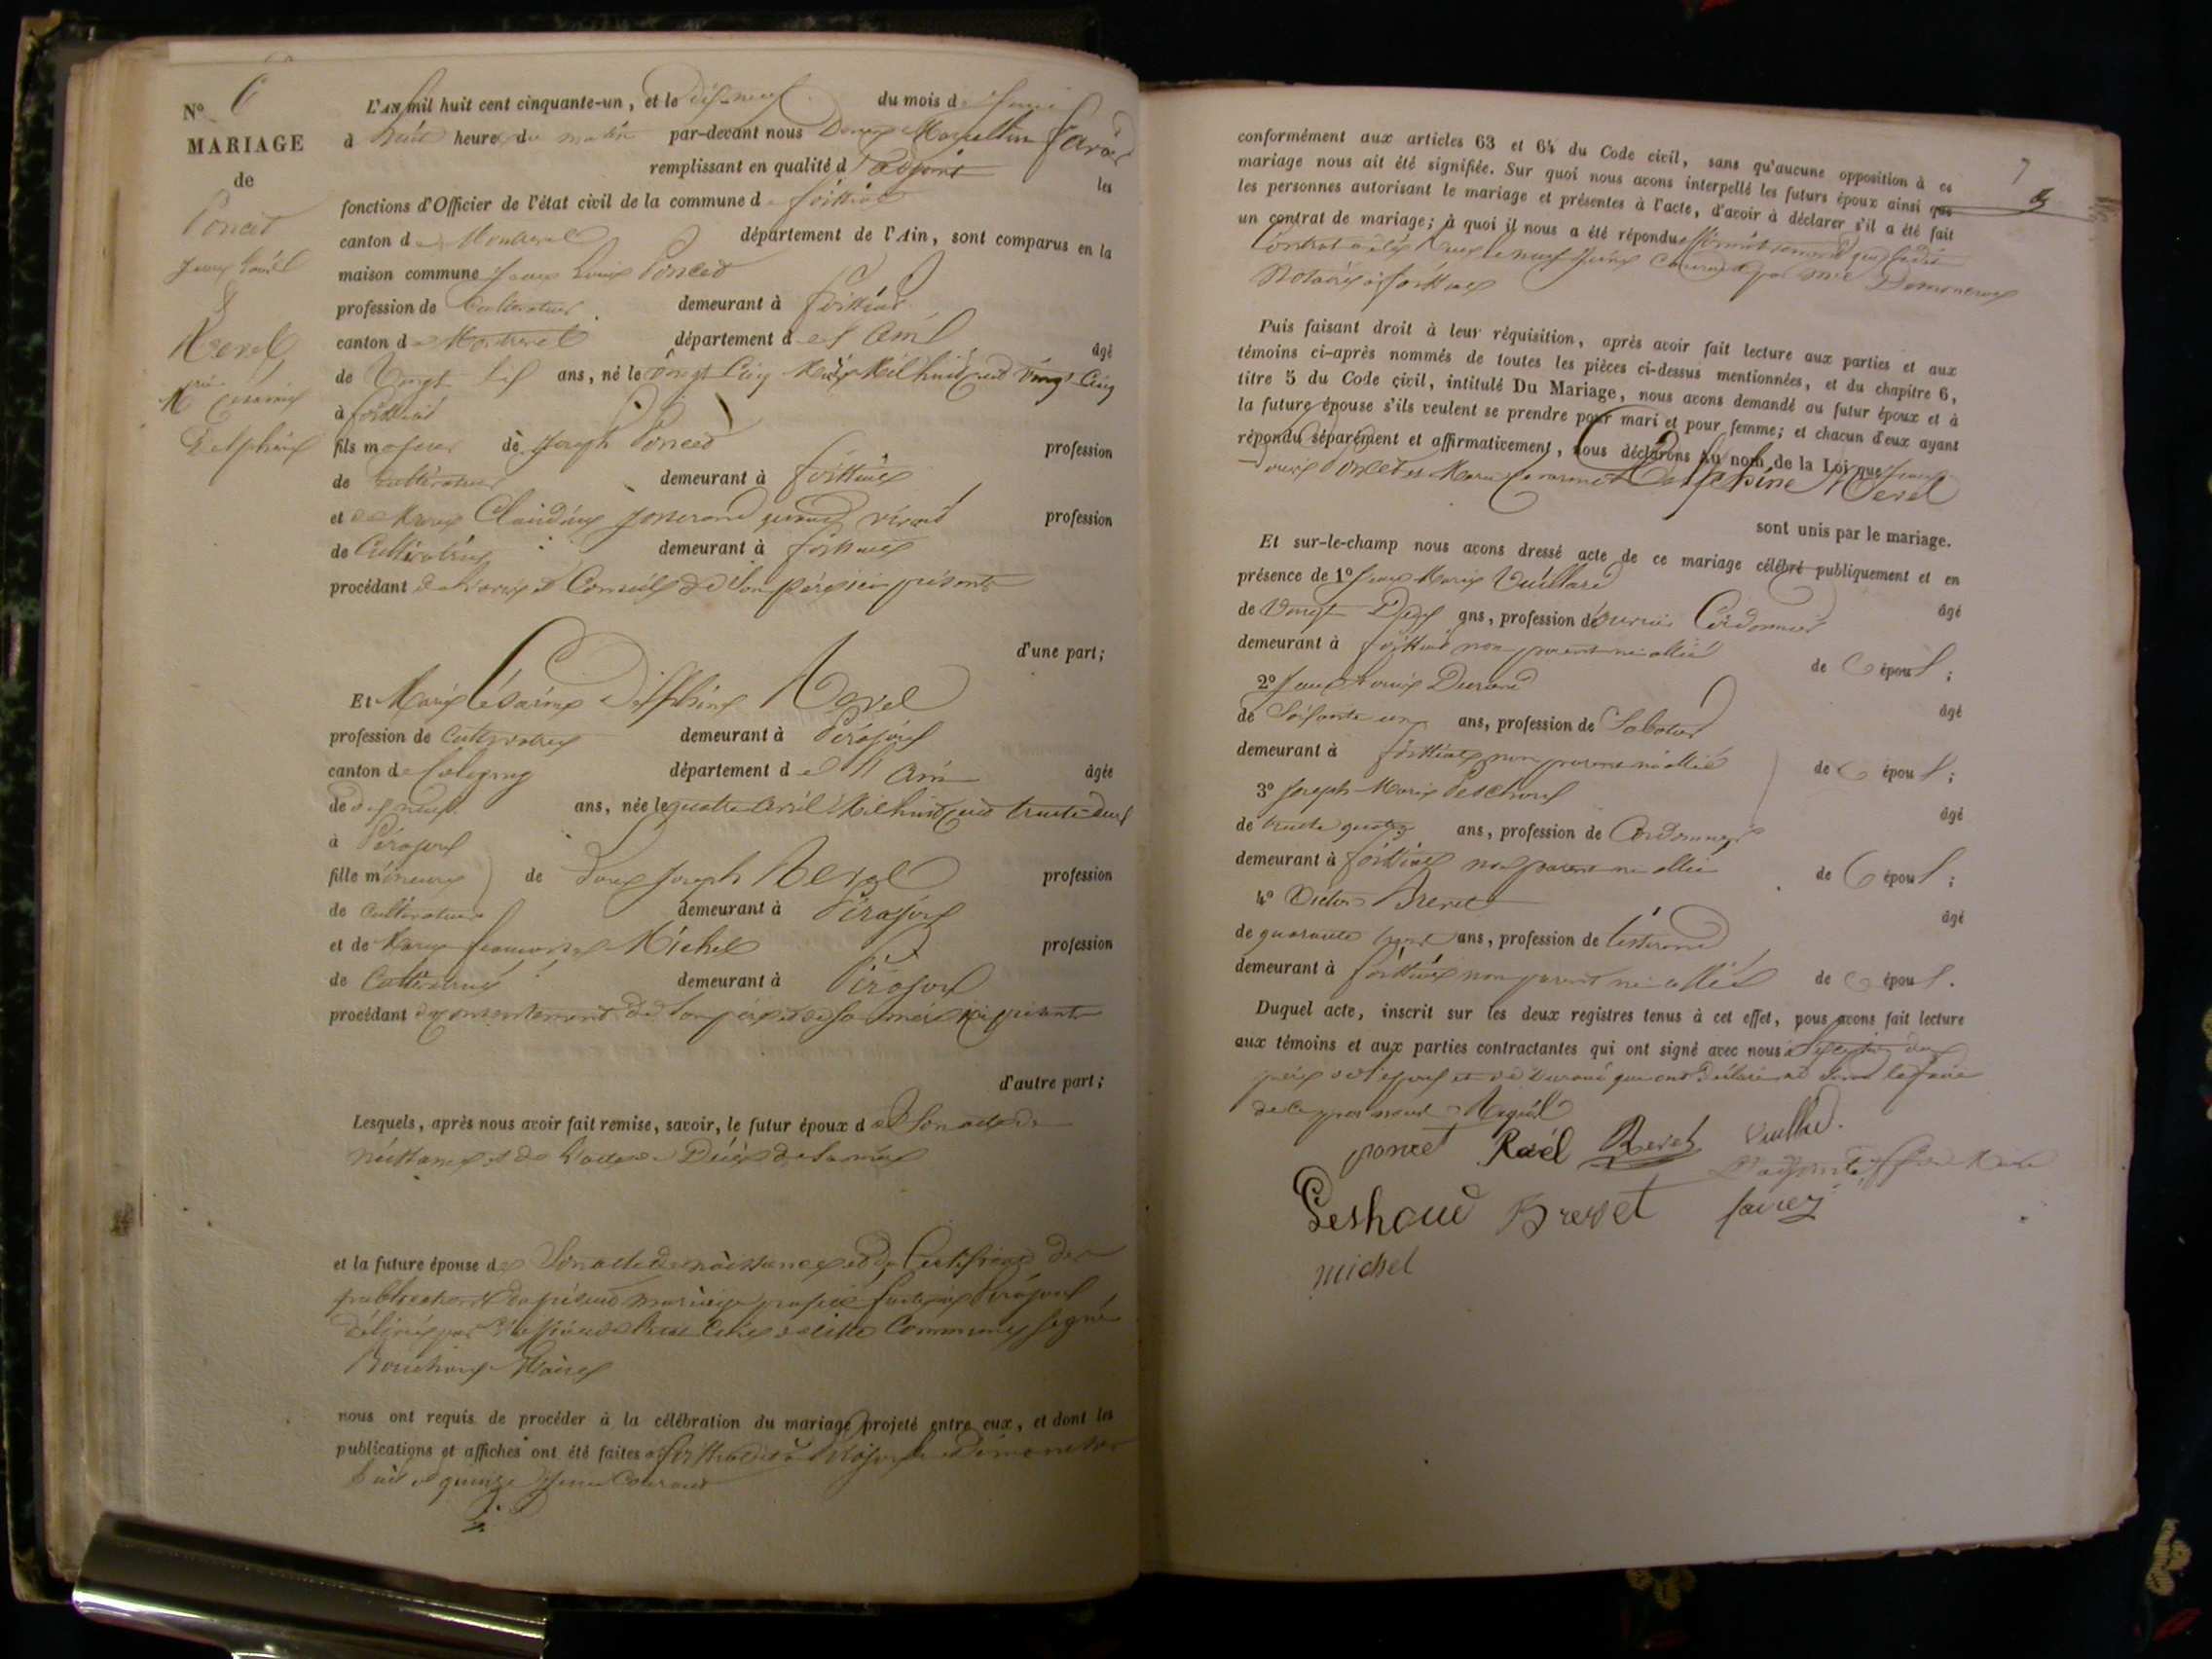 N° 6
MARIAGE
de
Poncet
Jean Louis
&
Revel
Mie Césarine
Delphine
L'AN mil huit cent cinquante-un, et le dix-neuf du mois de Juin
à huit heure du matin par-devant nous Denis Marcellin
remplissant en qualité d'adjoint les
fonctions d'Officier de l'état civil de la commune de foissiat
canton de Montrevel département de l'Ain, sont comparus en la
maison commune Jean Louis Poncet
profession de Cultivateur demeurant à foissiat
canton de Montrevel département de l'Ain âgé
de Vingt Six ans, né le vingt Cinq Mai Mil huit cent Vingt Cinq
à foissiat
fils majeur de Joseph Poncet profession
de Cultivateur demeurant à foissiat
et de Marie Claudine Joncrand quand vivait profession
de Cultivatrice demeurant à foissiat
procédant de l'avis et Conseil de Son père ici présent
d'une part;
Et Marie Césarine Delphine Revel
profession de Cultivatrice demeurant à Pirajoux
canton de Coligny département de l'Ain âgée
de dix neuf ans, née le quatre avril Mil huit cent trente deux
à Pirajoux
fille mineure de Joseph Revel profession
de Cultivateur demeurant à Pirajoux
et de Marie françoise Michel profession
de Cultivatrice demeurant à Pirajoux
procédant du consentement de Son père et de Sa mère ici présents
d'autre part;
Lesquels, après nous avoir fait remise, savoir, le futur époux de Son acte de
naissance et de l'acte de Décès de Sa mère
et la future épouse de Son acte de naissance et du Certificat des
publications du présent mariage faites à Pirajoux
délivré par Commune Signé
Maire
nous ont requis de procéder à la célébration du mariage projeté entre eux, et dont les
publications et affiches ont été faites à foissiat et à Pirajoux les Dimanches
huit et quinze Juin Courant
7
conformément aux articles 63 et 64 du Code civil, sans qu'aucune opposition à ce
mariage nous ait été signifiée. Sur quoi nous avons interpellé les futurs époux ainsi que
les personnes autorisant le mariage et présentes à l'acte, d'avoir à déclarer s'il a été fait
un contrat de mariage; à quoi il nous a été répondu affirmativement que ledit
Contrat a été Reçu le neuf Juin Courant par me
Notaire à foissiat
Puis faisant droit à leur réquisition, après avoir fait lecture aux parties et aux
témoins ci-après nommés de toutes les pièces ci-dessus mentionnées, et du chapitre 6,
titre 5 du Code civil, intitulé Du Mariage, nous avons demandé au futur époux et à
la future épouse s'ils veulent se prendre pour mari et pour femme; et chacun d'eux ayant
répondu séparément et affirmativement, nous déclarons au nom de la Loi que Jean
Louis Poncet et Marie Césarine Delphine Revel
sont unis par le mariage.
Et sur-le-champ nous avons dressé acte de ce mariage célébré publiquement et en
présence de 1° Jean Marie Vuillard âgé
de Vingt ans, profession d'ouvrier Cordonnier
demeurant à foissiat non parent ni allié de C époux;
2° Jean Louis Durand âgé
de Soixante un ans, profession de Sabotier
demeurant à foissiat non parent ni allié de C époux;
3° Joseph Marie Peschoud âgé
de trente quatre ans, profession de Cordonnier
demeurant à foissiat non parent ni allié de C époux;
4° Victor Brevet âgé
de quarante ans, profession de
demeurant à foissiat non parent ni allié de C époux.
Duquel acte, inscrit sur les deux registres tenus à cet effet, nous avons fait lecture
aux témoins et aux parties contractantes qui ont signé avec nous à l'exception du
père de l'époux et de Durand qui ont déclaré ne Savoir le faire
de ce par nous Requis
poncet Revel Revel Vuillard.
Peshoud Brevet
michel